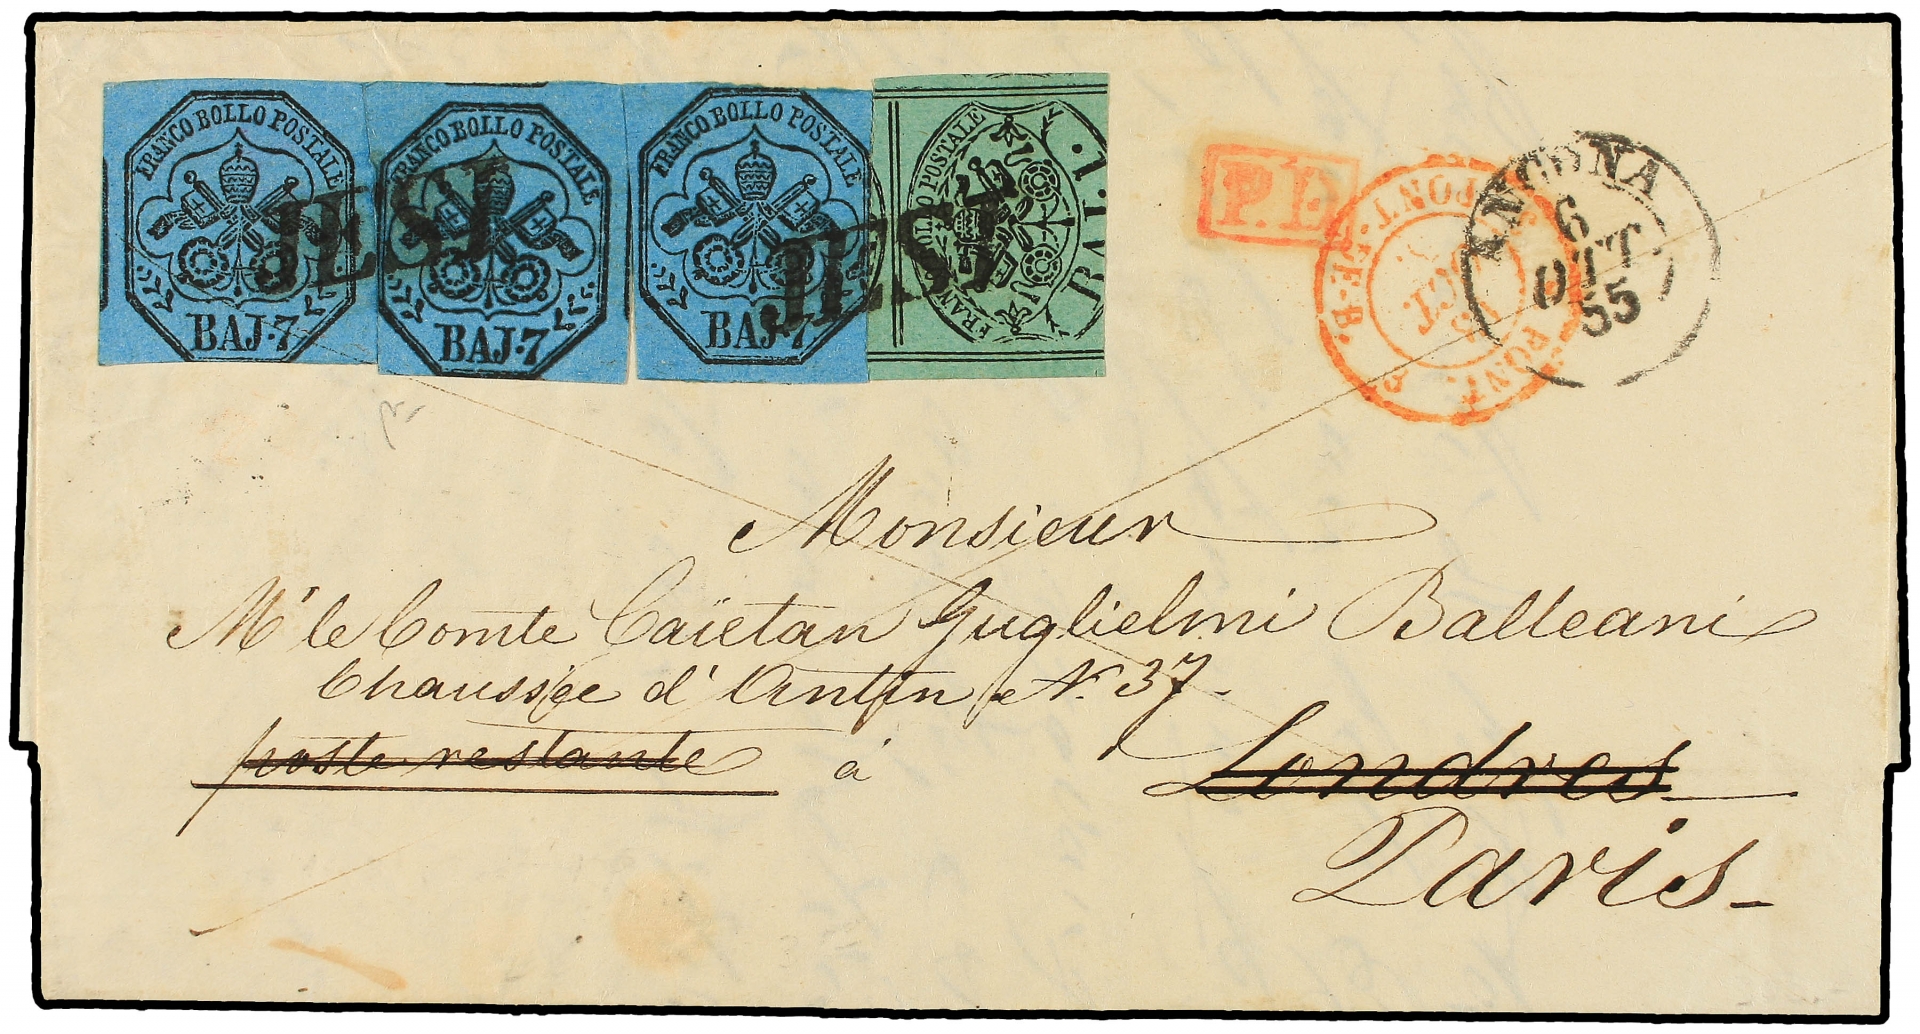 FRANCO BOLLO POSTALE
BAJ·7
FRANCO BOLLO POSTALE
BAJ·7
FRANCO BOLLO POSTALE
BAJ·7
FRANCO BOLLO POSTALE
BAJ·1
JESI
JESI
P.D.
ANCONA
6
OTT
55
Monsieur
Mr le Comte Caïetan Guglielmi Balleani
Chaussée d'Antin N. 37
poste restante à Londres
Paris